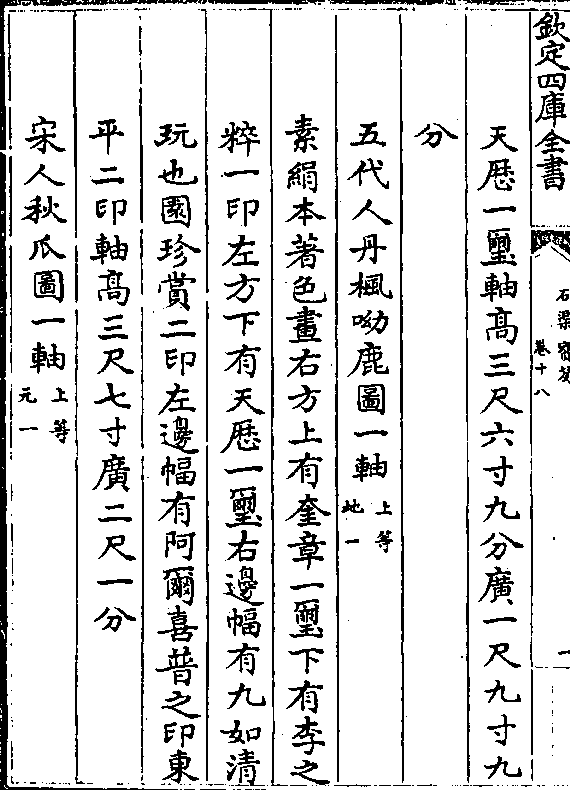 欽定四庫全書
石渠寶笈
卷十八
天厯一璽軸高三尺六寸九分廣一尺九寸九
分
五代人丹楓呦鹿圖一軸 上等地一
素絹本著色畫右方上有奎章一璽下有李之
粹一印左方下有天厯一璽右邊幅有九如清
玩也園珍賞二印左邊幅有阿爾喜普之印東
平二印軸高三尺七寸廣二尺一分
宋人秋瓜圖一軸 上等元一